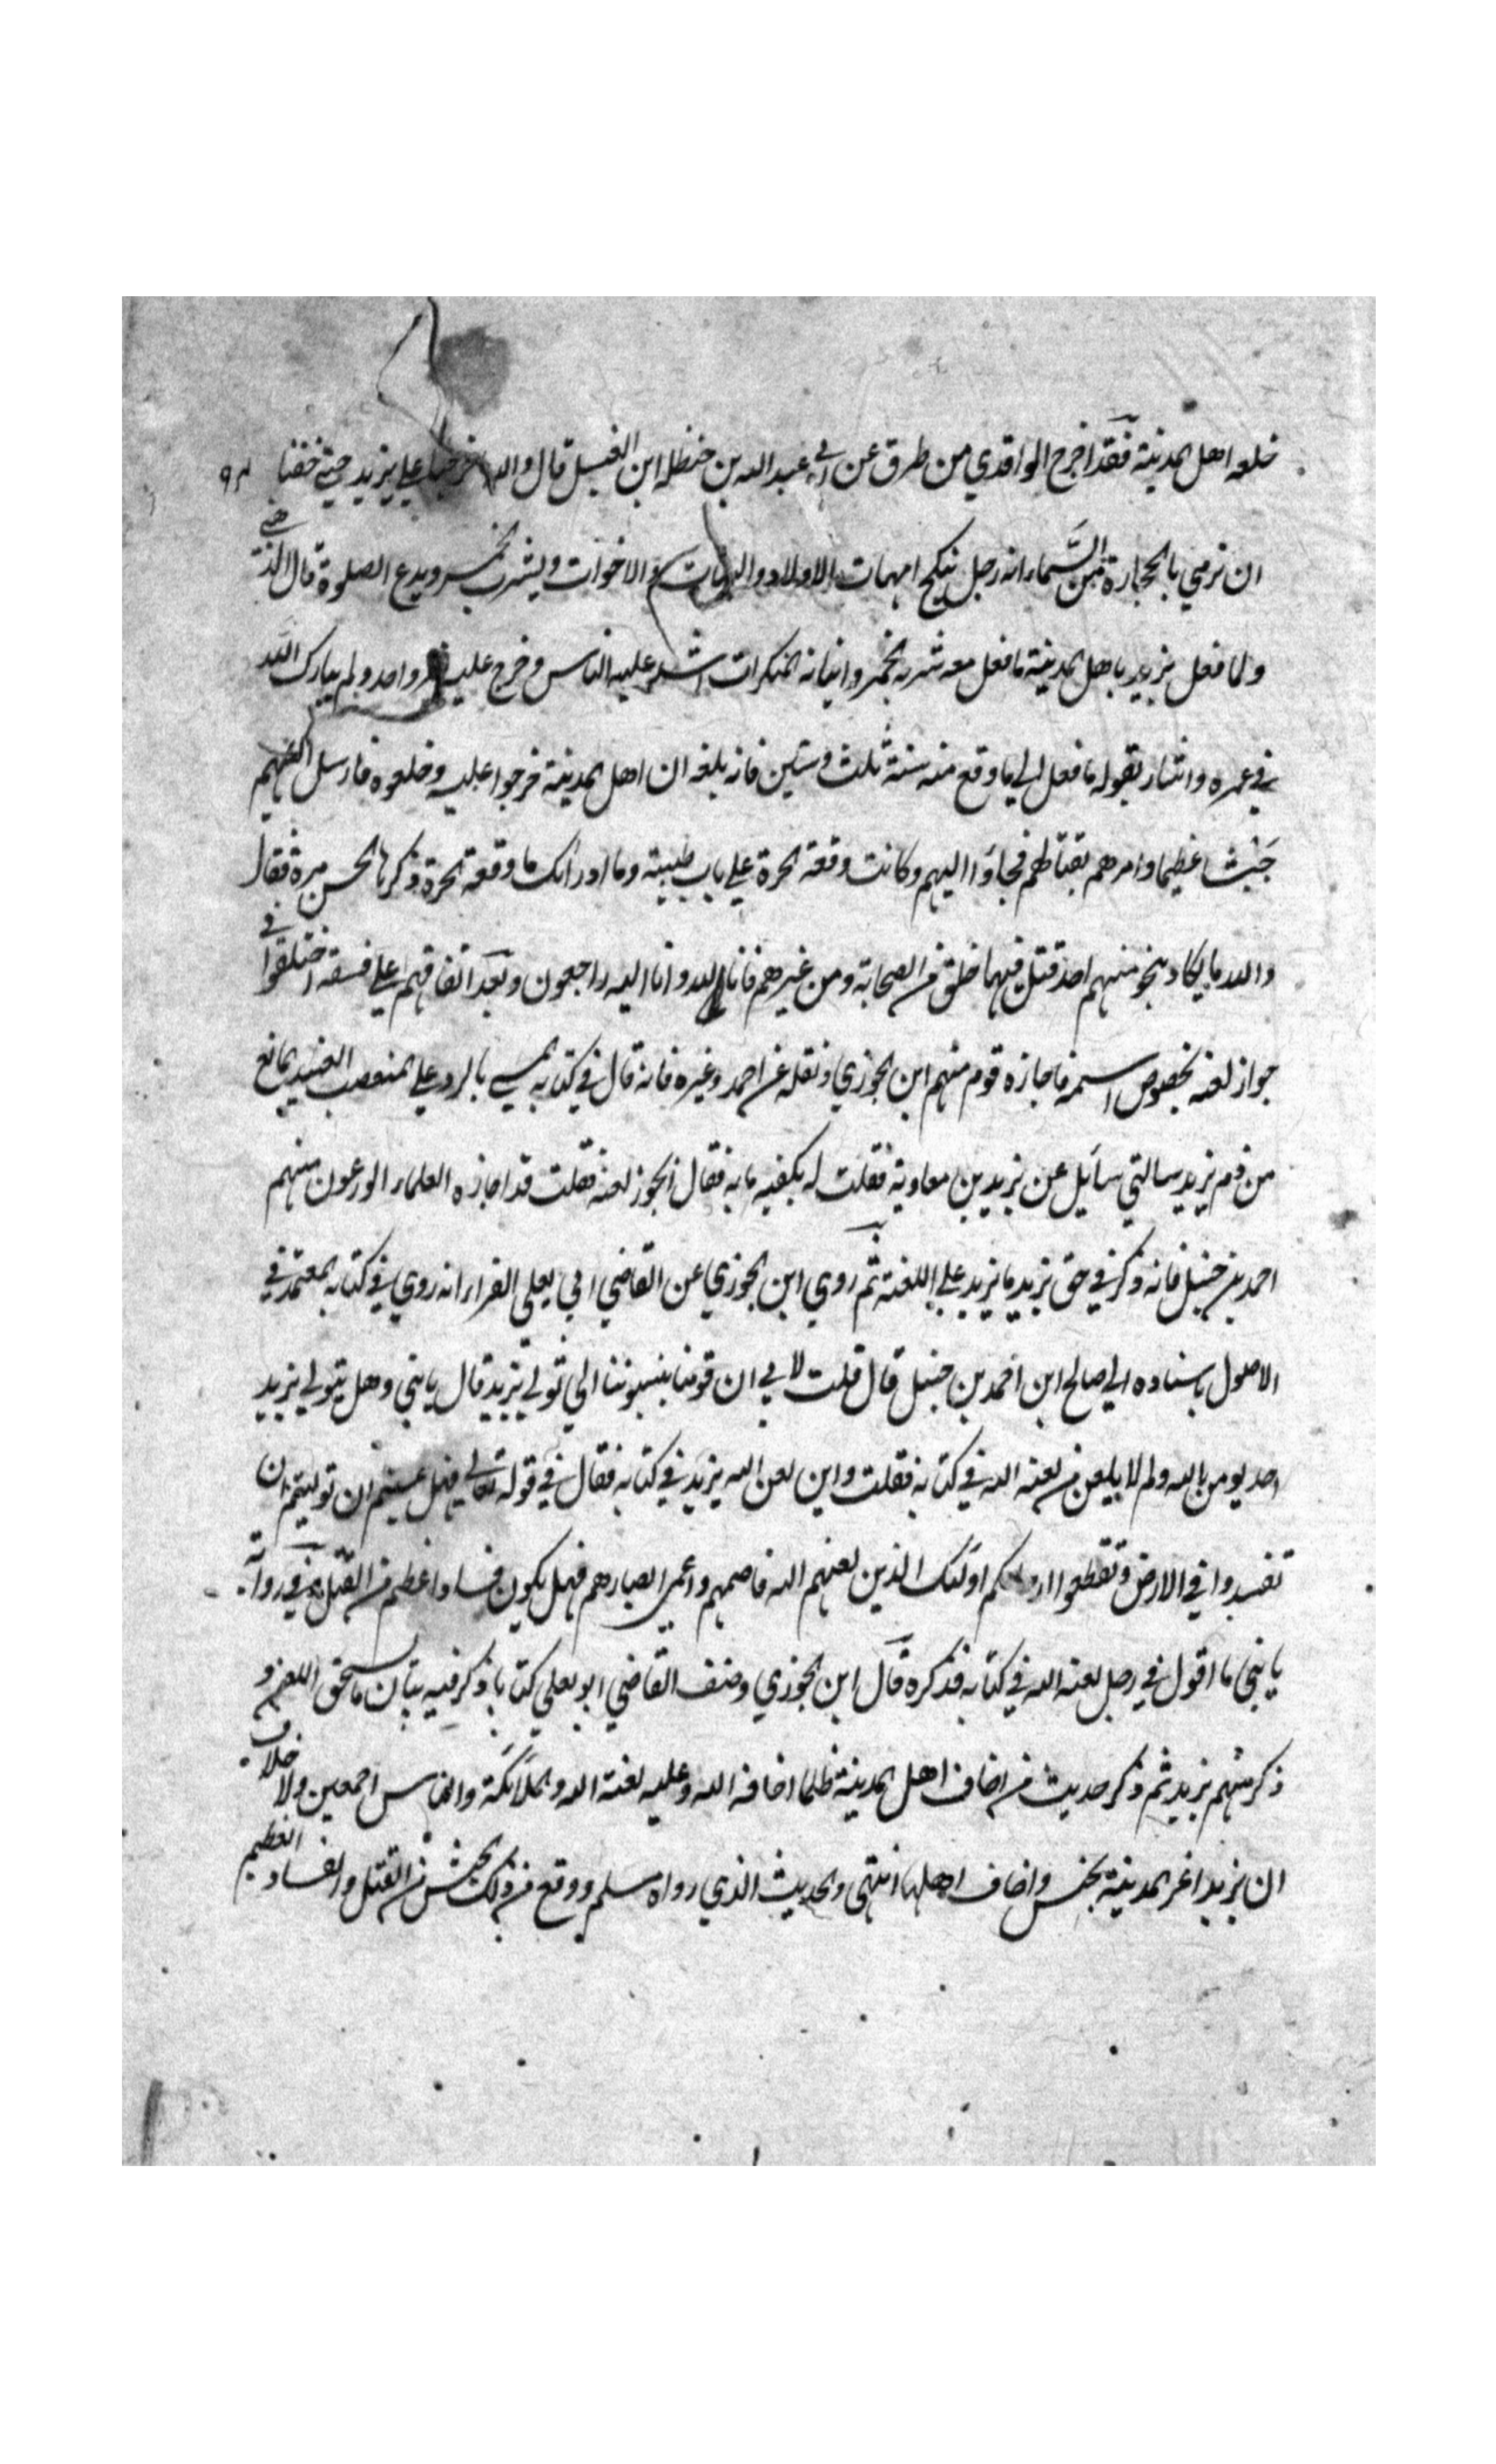 خلعه اهل المدينة فقد اخرج الواقدي من طرق عن ابي عبد الله بن حنظله ابن الغسيل قال والله ما خرجنا علي يزيد حتي خفنا ٩٢
ان نرمي بالحجارة من السماء انه رجل ينكح امهات الاولاد والبنات والاخوات ويشرب الخمر ويدع الصلوة قال الذهبي
ولما فعل يزيد باهل المدينة ما فعل مع شربه الخمر واتيانه المنكرات اشتد عليه الناس وخرج عليه غير واحد ولم يبارك الله
في عمره واشار بقوله ما فعل الي ما وقع منه سنة ثلث وستين فانه بلغه ان اهل المدينة خرجوا عليه وخلعوه فارسل اليهم
جيشا عظيما وامرهم بقتالهم فجاؤا اليهم وكانت وقعة الحرة علي باب طيبة وما ادراك ما وقعة الحرة ذكرها الحسن مرة فقال
والله ما يكاد ينجو منهم احد قتل فيها خلق من الصحابة ومن غيرهم فانا لله وانا اليه راجعون وبعد اتفاقهم علي فسقه اختلفوا في
جواز لعنه بخصوص اسمه فاجازه قوم منهم ابن الجوزي ونقله عن احمد وغيره فانه قال في كتابه المسمي بالرد علي المتعصب العنيد المانع
من ذم يزيد سالتي سائل عن يزيد بن معاوية فقلت له يكفيه ما به فقال ايجوز لعنه فقلت قد اجازه العلماء الورعون منهم
احمد بن حنبل فانه ذكر في حق يزيد ما يزيد علي اللعنة ثم روي ابن الجوزي عن القاضي ابي يعلي الفراء انه روي في كتابه المعتمد في
الاصول باسناده الي صالح ابن احمد بن حنبل قال قلت لابي ان قوما ينسبوننا الي تولي يزيد قال يا بني وهل يتولي يزيد
احد يومن بالله ولم لا يلعن من لعنه الله في كتابه فقلت واين لعن الله يزيد في كتابه فقال في قوله تعالي فهل عسيتم ان توليتم ان
تفسدوا في الارض وتقطعوا ارحامكم اولئك الذين لعنهم الله فاصمهم واعمي ابصارهم فهل يكون فساد اعظم من القتل وفي رواية
يا بني ما اقول في رجل لعنه الله في كتابه فذكره قال ابن الجوزي وصنف القاضي ابو يعلي كتابا ذكر فيه بيان ما يستحق اللعن و
ذكر منهم يزيد ثم ذكر حديث من اخاف اهل المدينة ظلما اخافه الله وعليه لعنة الله والملائكة والناس اجمعين ولا خلاف
ان يزيد اغز المدينة بجيش واخاف اهلها انتهي والحديث الذي رواه مسلم ووقع من ذلك الجيش من القتل والفساد العظيم